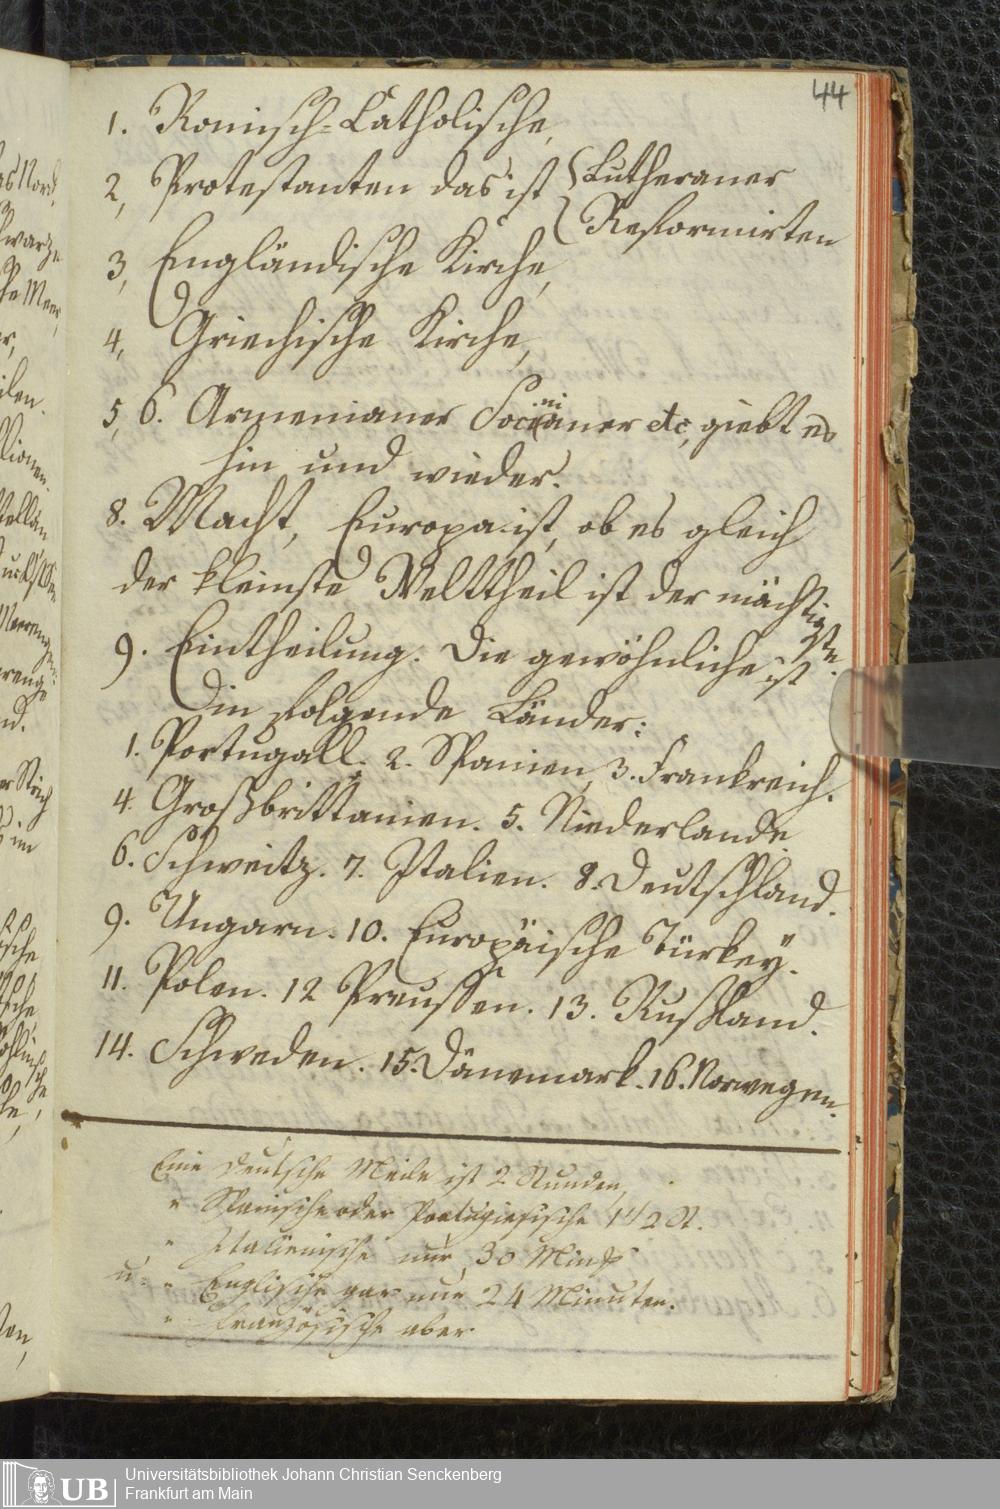 44
1. Romisch-Catholische,
2, Protestanten das ist { Lutheraner
Reformirten
3, Engländische Kirche,
4, Griechische Kirche,
5, 6. Armenianer Socinianer etc, giebt es
hin und wieder.
8. Macht, Europa ist, ob es gleich
der kleinste Welttheil ist der mächtigste.
9. Eintheilung. Die gewöhnliche ist
in folgende Länder:
1. Portugall. 2. Spanien, 3. Frankreich.
4. Großbrittanien. 5. Niederlande.
6. Schweitz. 7. Italien. 8. Deutschland.
9. Ungarn. 10. Europäische Türkey.
11. Polen. 12 Preussen. 13. Rußland.
14. Schweden. 15. Dänemark. 16. Norwegen.
Eine deutsche Meile ist 2 Stunden,
" Spanische oder Portugiesische 1 1/2 St.
" Italienische nur 30 Minut
u. " Englische gar nur 24 Minuten.
" französische aber
UB
Universitätsbibliothek Johann Christian Senckenberg
Frankfurt am Main